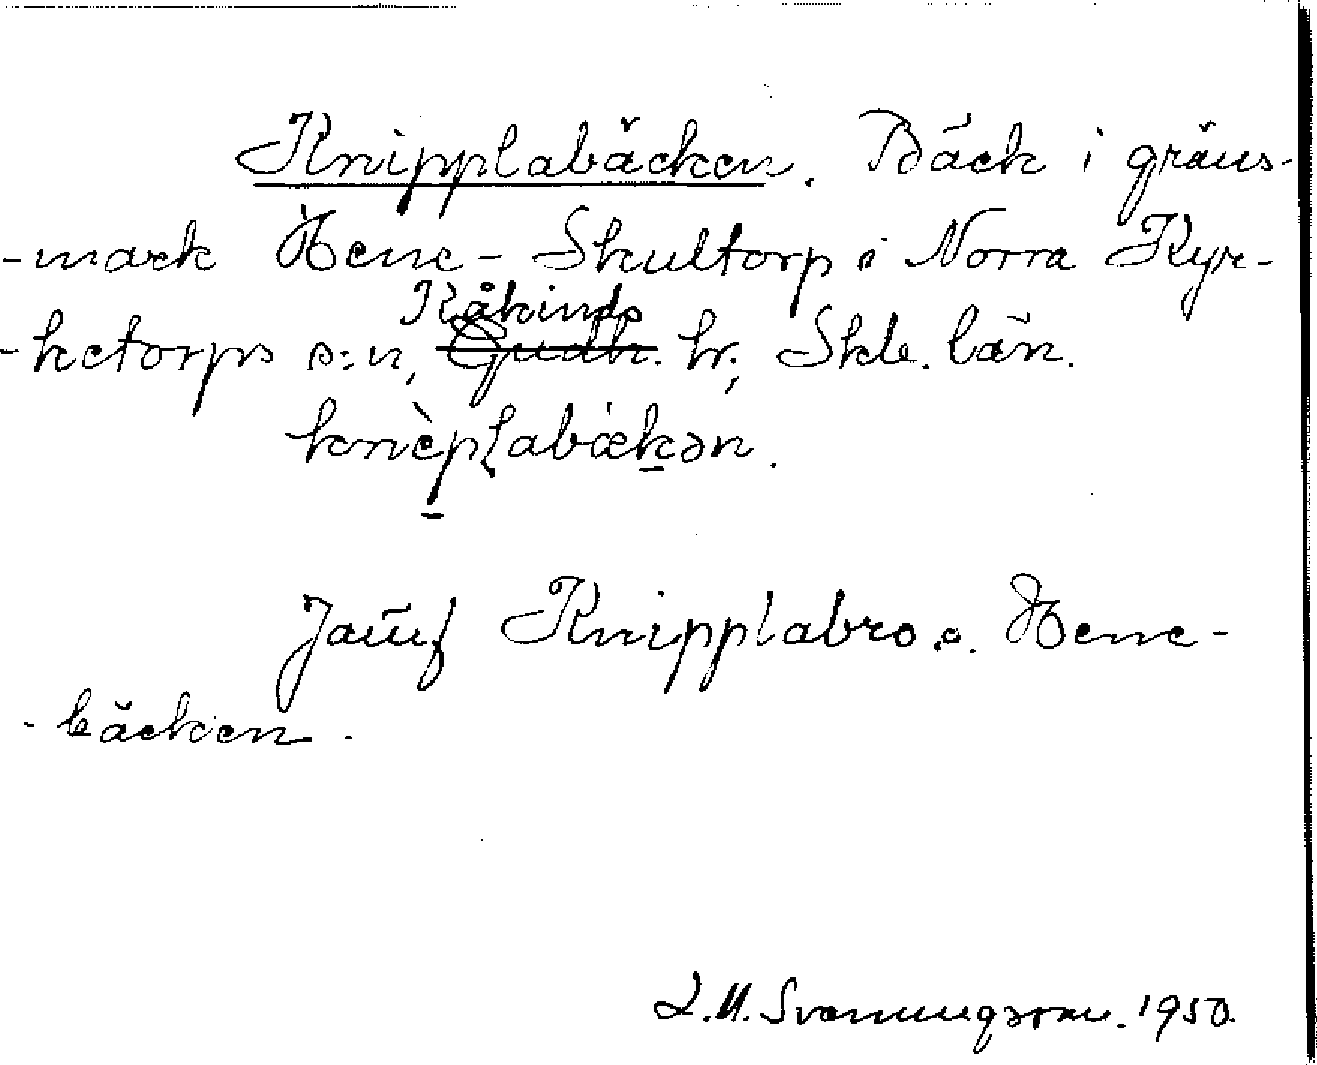 Knipplabäcken. Bäck i gräns-
-mark Hene - Skultorp i Norra Kyr-
Kåkinds
-ketorps s:n, Gudh. hr, Skb. län.
knèplabäkən.
Jämf Knipplabro o. Hene-
-bäcken.
L.M. Svenungsson. 1950.